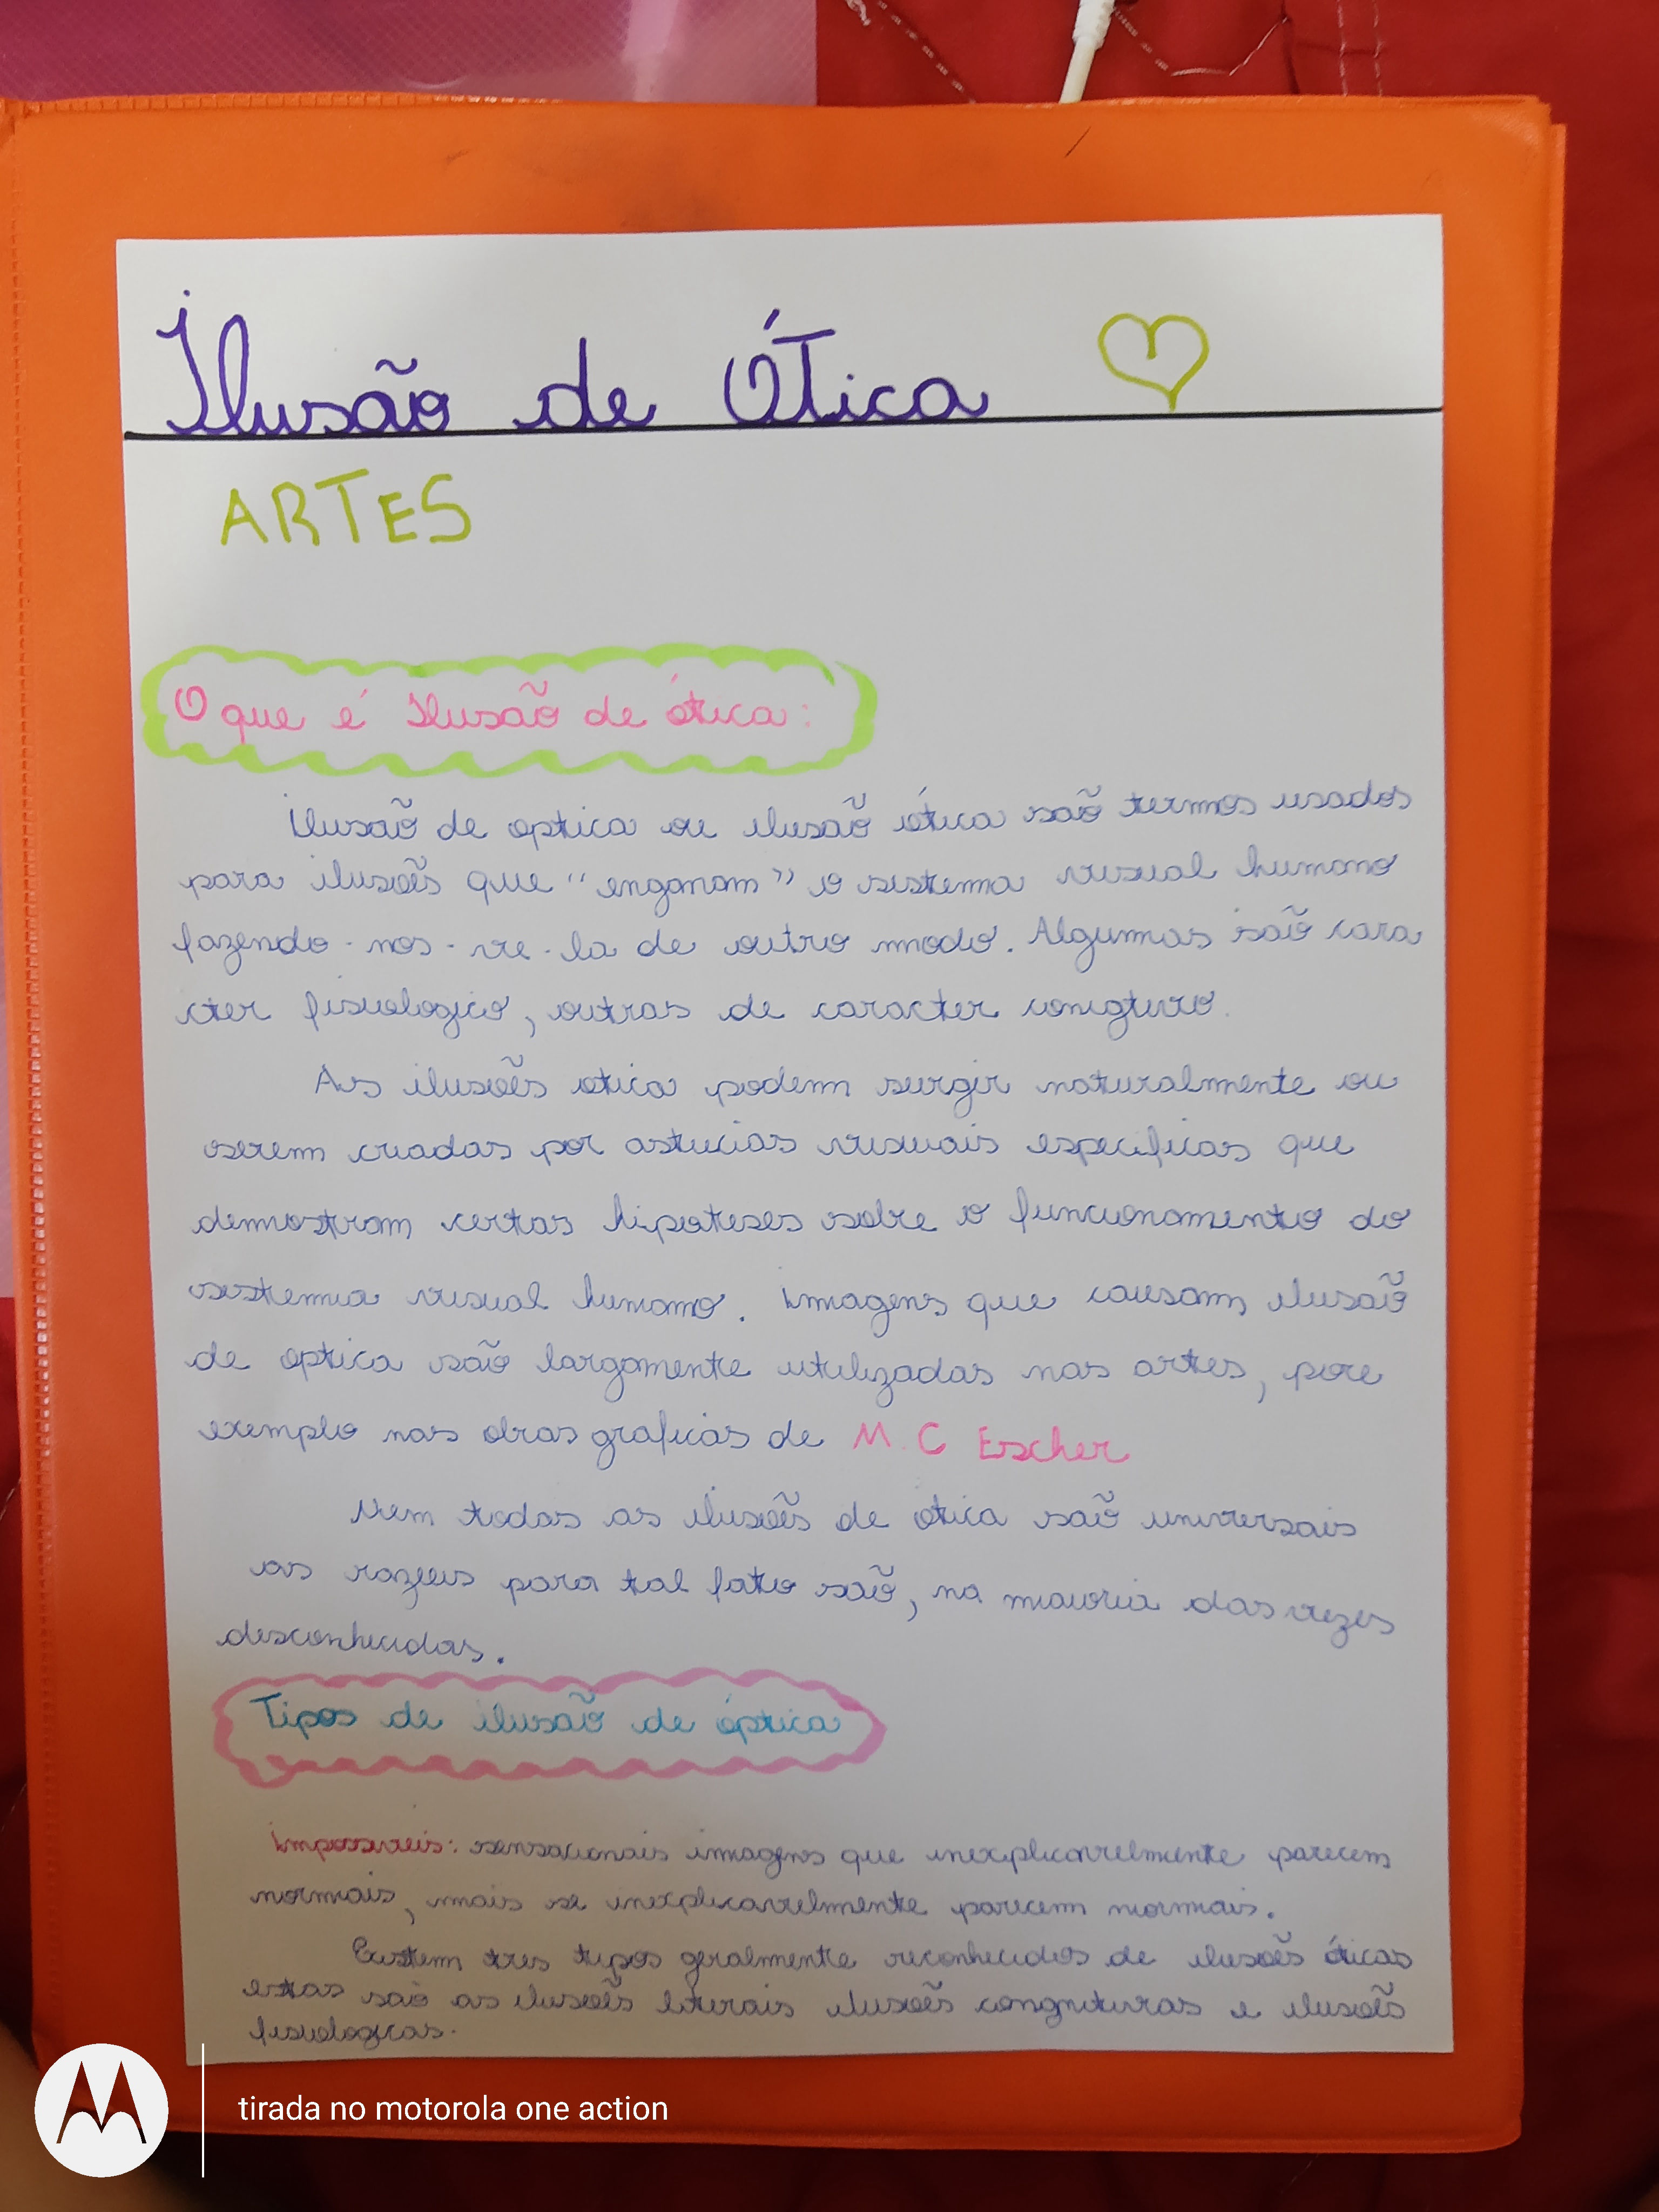 Ilusão de Ótica
ARTES
O que é Ilusão de ótica:
Ilusão de optica ou ilusão ótica são termos usados
para ilusões que "enganam" o sistema visual humano
fazendo-nos-ve-la de outro modo. Algumas são cara
cter fisiologico, outras de caracter conigtivo.
As ilusões otica podem surgir naturalmente ou
serem criadas por astucias visuais especificas que
demostram certas hipoteses sobre o funcionamento do
sistema visual humano. Imagens que causam ilusão
de optica são largamente utilizadas nas artes, pore
exemplo nas obras graficas de M.C Escher
Nem todas as ilusões de ótica são universais
as razões para tal fato são, na maioria das vezes
desconhecidas.
Tipos de ilusão de óptica
Impossiveis: sensacionais imagens que inexplicavelmente parecem
normais, mais se inexplicavelmente parecem normais.
Existem tres tipos geralmente reconhecidos de ilusões óticas
estas são as ilusões literais ilusões congnitivas e ilusões
fisiologicas.
tirada no motorola one action